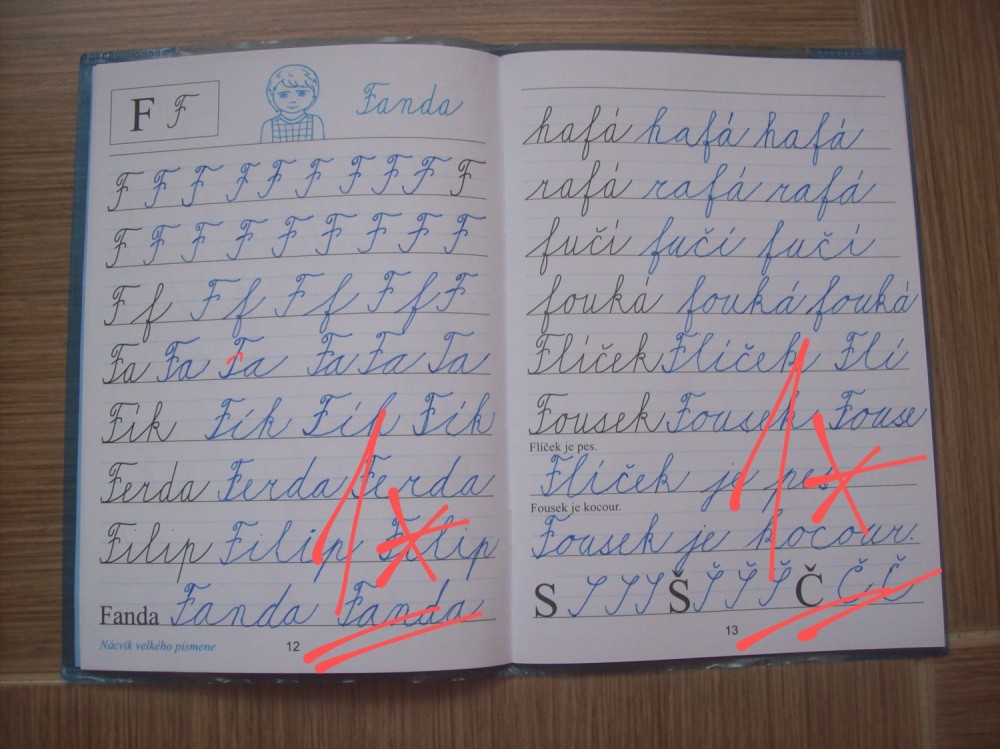 F F Fanda
F F F F F F F F F F
F F F F F F F F F
F f F f F f F f F
Fa Fa Fa Fa Fa Fa
Fík Fík Fík Fík
Ferda Ferda Ferda
Filip Filip Filip
Fanda Fanda Fanda
1*
Nácvik velkého písmene 12
hafá hafá hafá
rafá rafá rafá
fučí fučí fučí
fouká fouká fouká
Flíček Flíček Flí
Fousek Fousek Fouse
Flíček je pes.
Flíček je pes
Fousek je kocour.
Fousek je kocour.
S S S S Š Š Š Š Č Č Č
1*
13